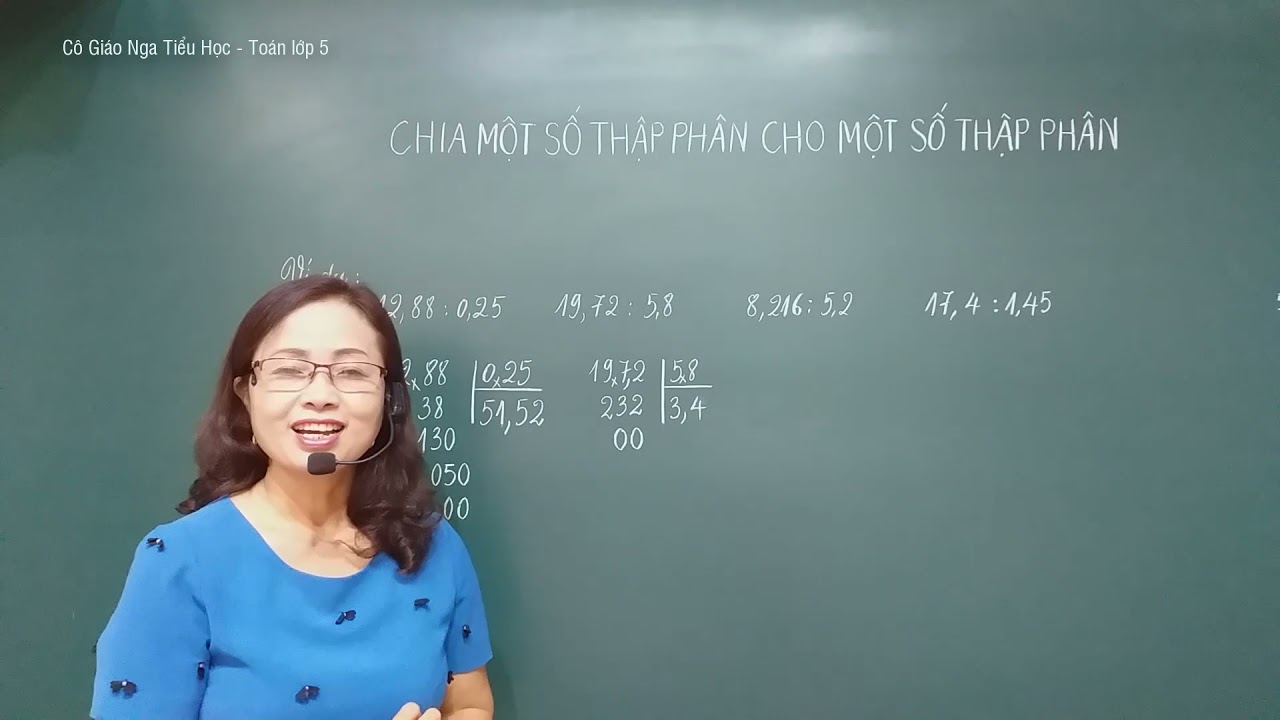 Cô Giáo Nga Tiểu Học - Toán lớp 5
CHIA MỘT SỐ THẬP PHÂN CHO MỘT SỐ THẬP PHÂN
Ví dụ :
12,88 : 0,25 19,72 : 5,8 8,216 : 5,2 17,4 : 1,45
2,88 0,25 19,7,2 5,8
38 51,52 232 3,4
130 00
050
00